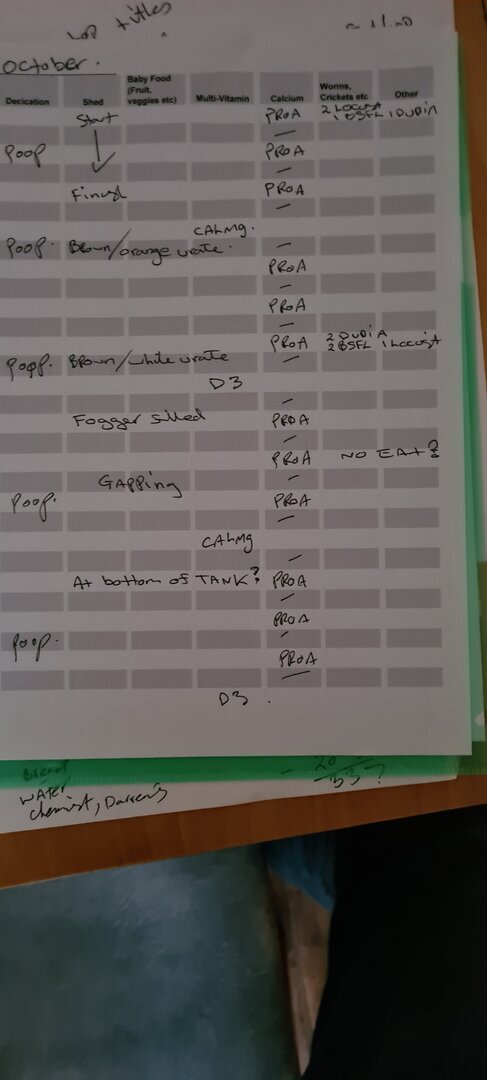 titles
October.
Decication Shed Baby Food (Fruit, veggies etc) Multi-Vitamin Calcium Worms, Crickets etc Other
Start PROA 2 Locust 1 DUPIA
1 BSFL
—
Poop PROA
—
Finish PROA
—
CALMg.
Poop. Brown/orange urate. —
PROA
—
PROA
—
PROA 2 DUPIA
2 BSFL 1 Locust
Poop. Brown/white urate —
D3
—
Fogger filled PROA
—
PROA NO EAT?
—
GAPPing
Poop. PROA
—
CALMg
—
At bottom of TANK? PROA
—
PROA
Poop. —
PROA
—
D3.
Bread
WATER
Chemist, Darren's
33 ?